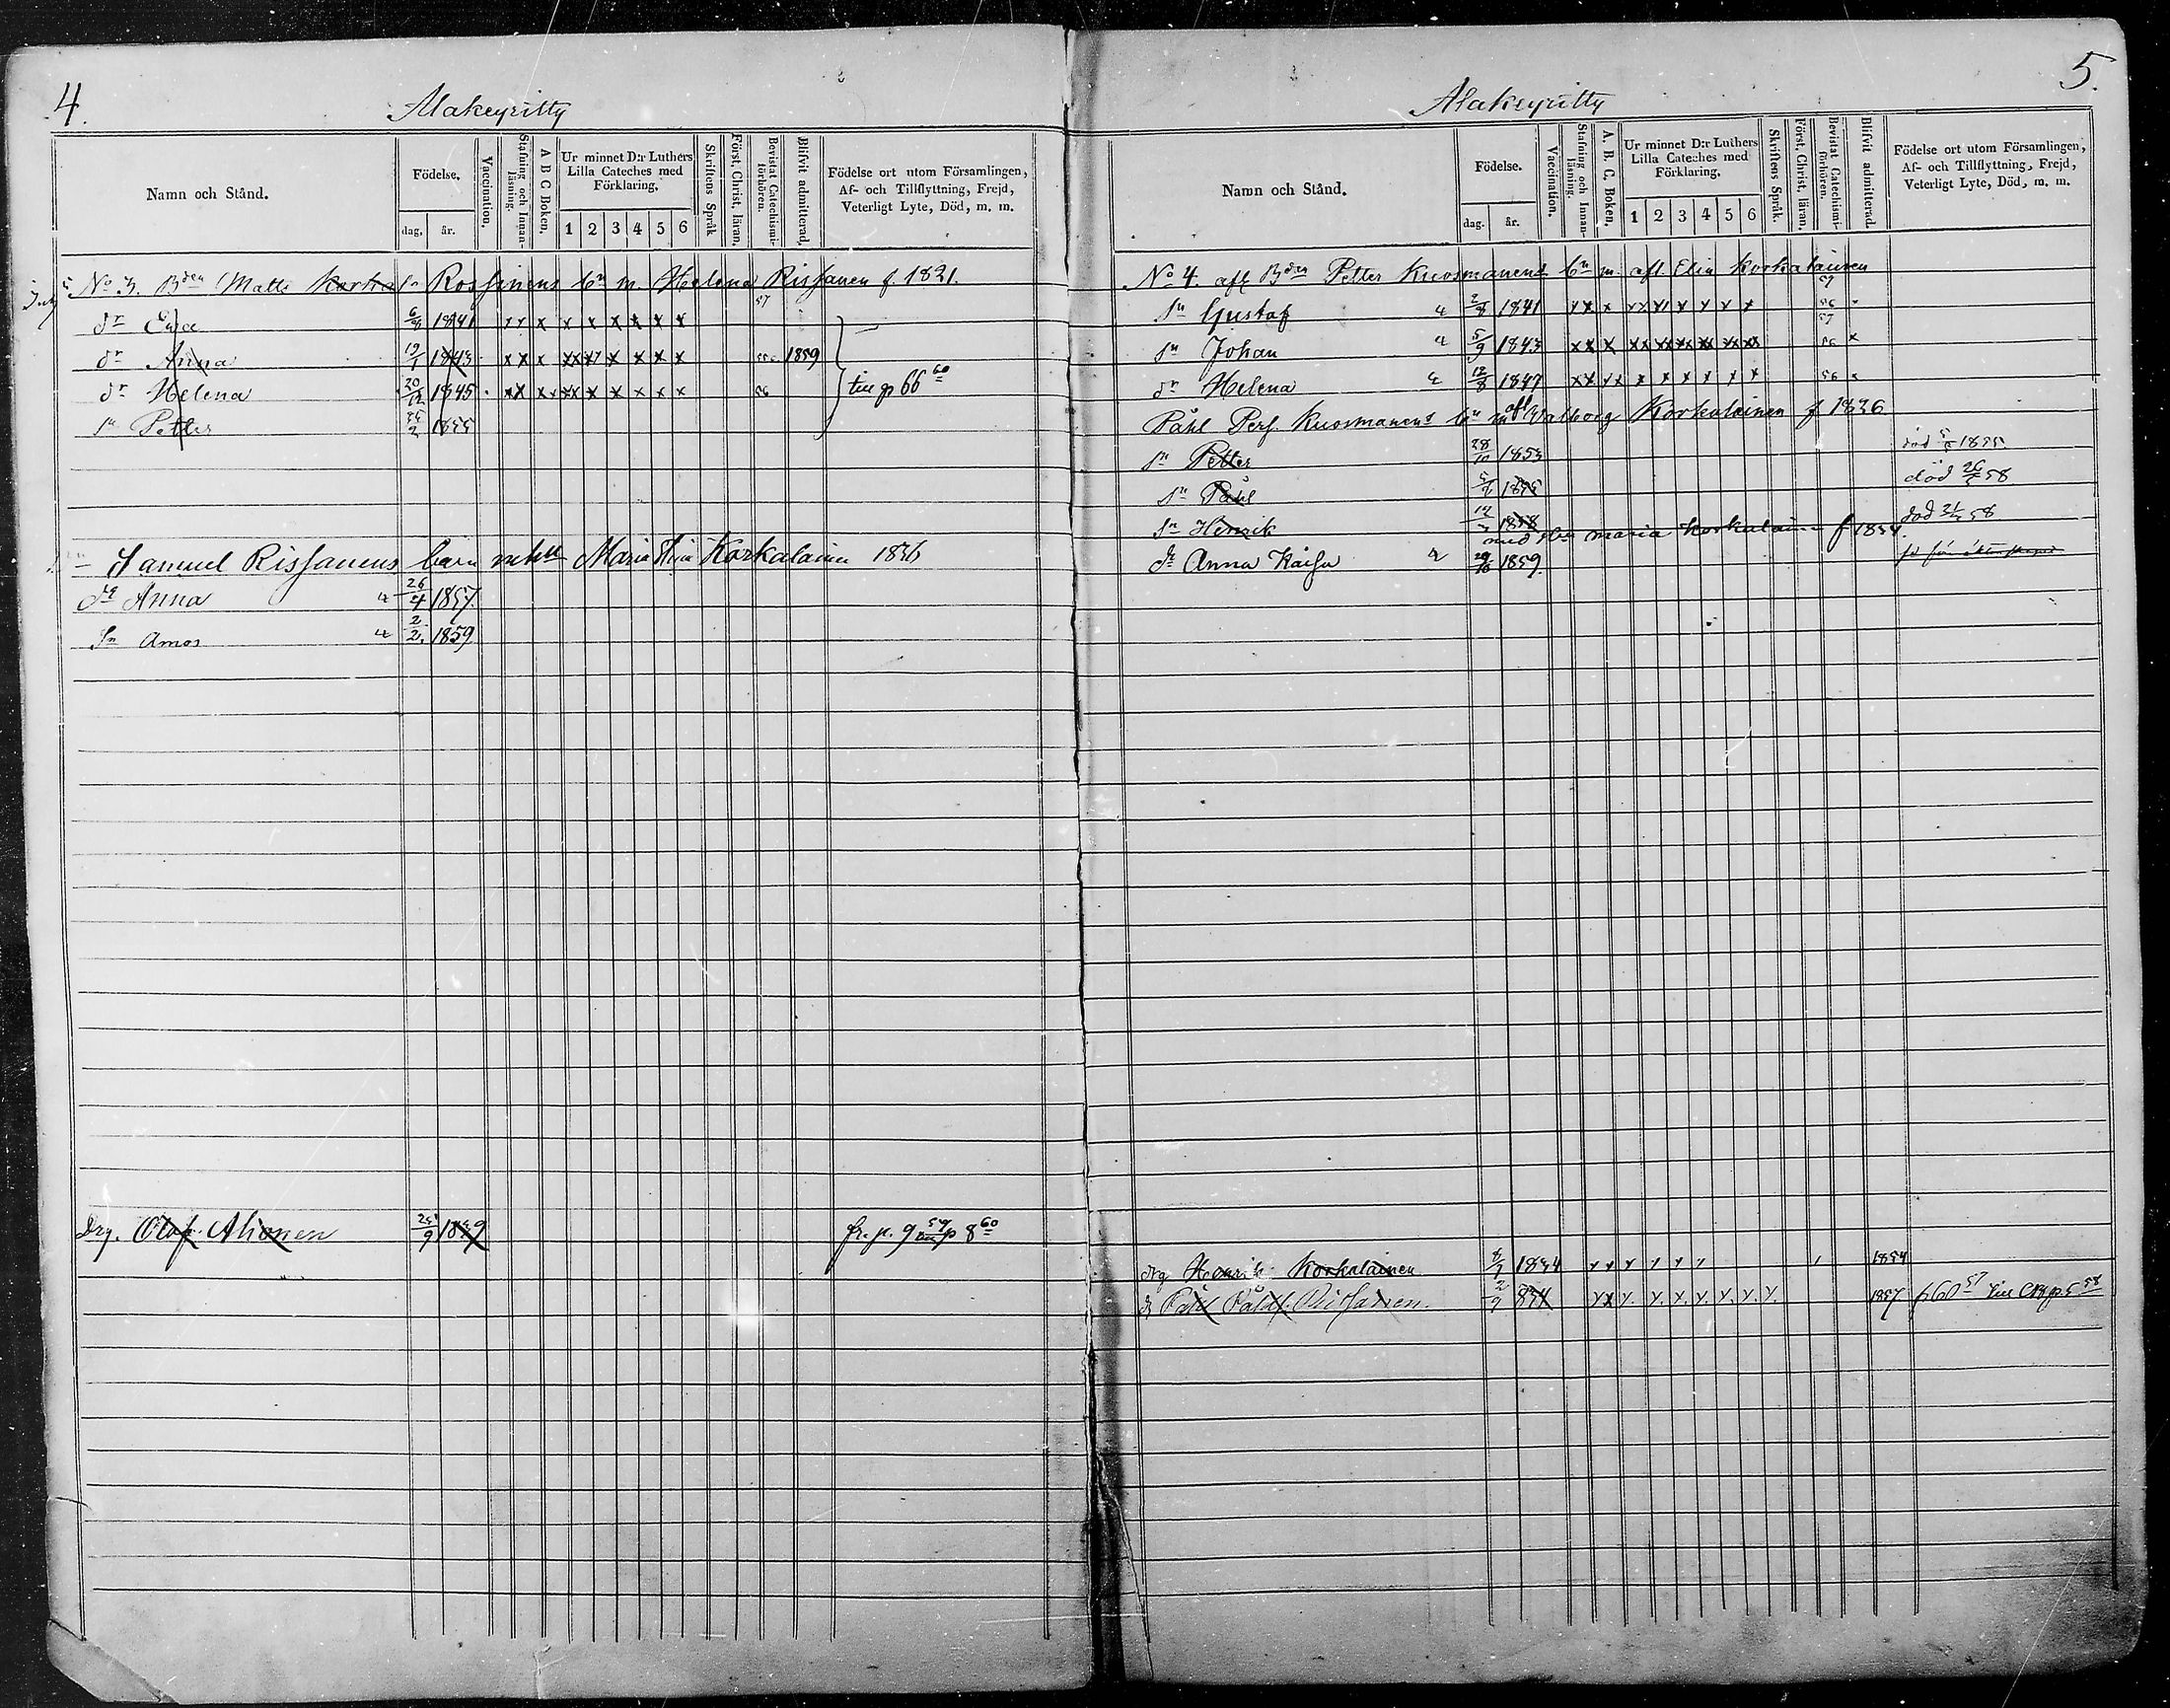 4.
Alakeyritty
Namn och Stånd.
Födelse.
dag. år.
Vaccination.
Stafning och Innanläsning.
A B C Boken.
Ur minnet D:r Luthers Lilla Cateches med Förklaring.
1 2 3 4 5 6
Skriftens Språk
Först. Christ. läran.
Bevistat Catechismiförhören.
Blifvit admitterad.
Födelse ort utom Församlingen, Af- och Tillflyttning, Frejd, Veterligt Lyte, Död, m. m.
No 3. Bden Matti Korka Rossinens bn m. Helena Rissanen f. 1821.
57
dr Ewa 6/9 1841 x x x x x x x x x
dr Anna 19/1 1843 x x x xx x x x x x 1859
dr Helena 20/12 1845 x x x xx x x x x x 56 till p 66 60
sn Petter 1855
Samuel Rissanens barn m hu Maria Stina Korkalainen 1836
dr Anna 26/4 1857.
Sn Amos 2/2. 1859
Drg. Olof Ahonen 25/9 1839 fr. p. 9 59 p 8 60
5.
Alakeyritty
Namn och Stånd.
Födelse.
dag. år.
Vaccination.
Stafning och Innanläsning.
A. B. C. Boken.
Ur minnet D:r Luthers Lilla Cateches med Förklaring.
1 2 3 4 5 6
Skriftens Språk.
Först. Christ. läran.
Bevistat Catechismiförhören.
Blifvit admitterad.
Födelse ort utom Församlingen, Af- och Tillflyttning, Frejd, Veterligt Lyte, Död, m. m.
No 4. afl Bden Petter Kuosmanens bn m. afl. Elin Korkalainen
57
sn Gustaf 2/8 1841 x x x xx x x x x x 56
57
sn Johan 5/9 1843 x x x xx xx xx xx xx xx 56 x
dr Helena 12/8 1847 x x x x x x x x x x 56
Påhl Pers. Kuosmanens bn m afl Walborg Korkalainen f 1826
sn Petter 28/10 1853 död 1855.
sn Påhl 1855 död 58
sn Henrik 12 1858 död 58
med hu Maria Korkalainen f 1834.
dr Anna Kaisa 29/10 1859.
drg Henrik Korkalainen 1834 1854
d Påhl Påhls. Rissanen. 2/9 834 1857 p 60 57 till p 5 58